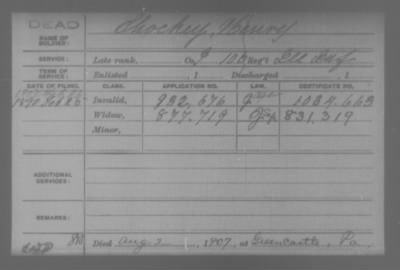 DEAD
NAME OF SOLDIER: Shockey, Henry
SERVICE: Late rank, Co. 100 Reg't Ill. Inf.
TERM OF SERVICE: Enlisted , 1 Discharged , 1
DATE OF FILING. CLASS. APPLICATION NO. LAW. CERTIFICATE NO.
1890 Invalid, 932,676 1034,663
Widow, 877,719 831,319
Minor,
ADDITIONAL SERVICES:
REMARKS:
Died Aug 2, 1907, at Greencastle, Pa.